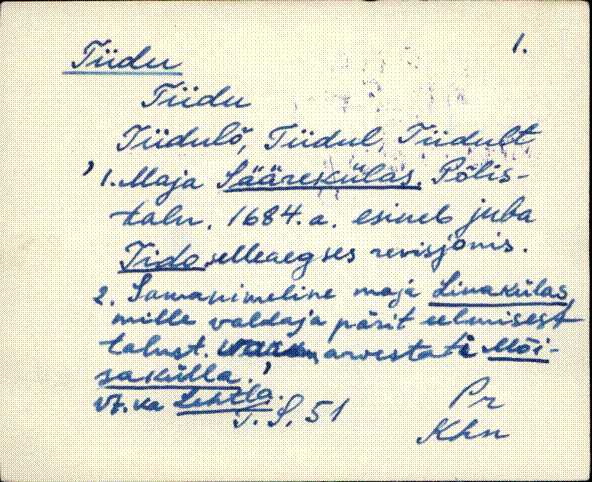 1.
Tiidu
Tiidu
Tiidulõ, Tiidul, Tiidult
'1. Maja Säärekülas. Põlis-
talu. 1684. a. esineb juba
Tido selleaegses revisjonis.
2. Samanimeline maja Linakülas,
mille valdaja pärit eelmisest
talust. arvestati Mõi-
sakülla.'
vt. ka
T. S. 51
Pr
Khn